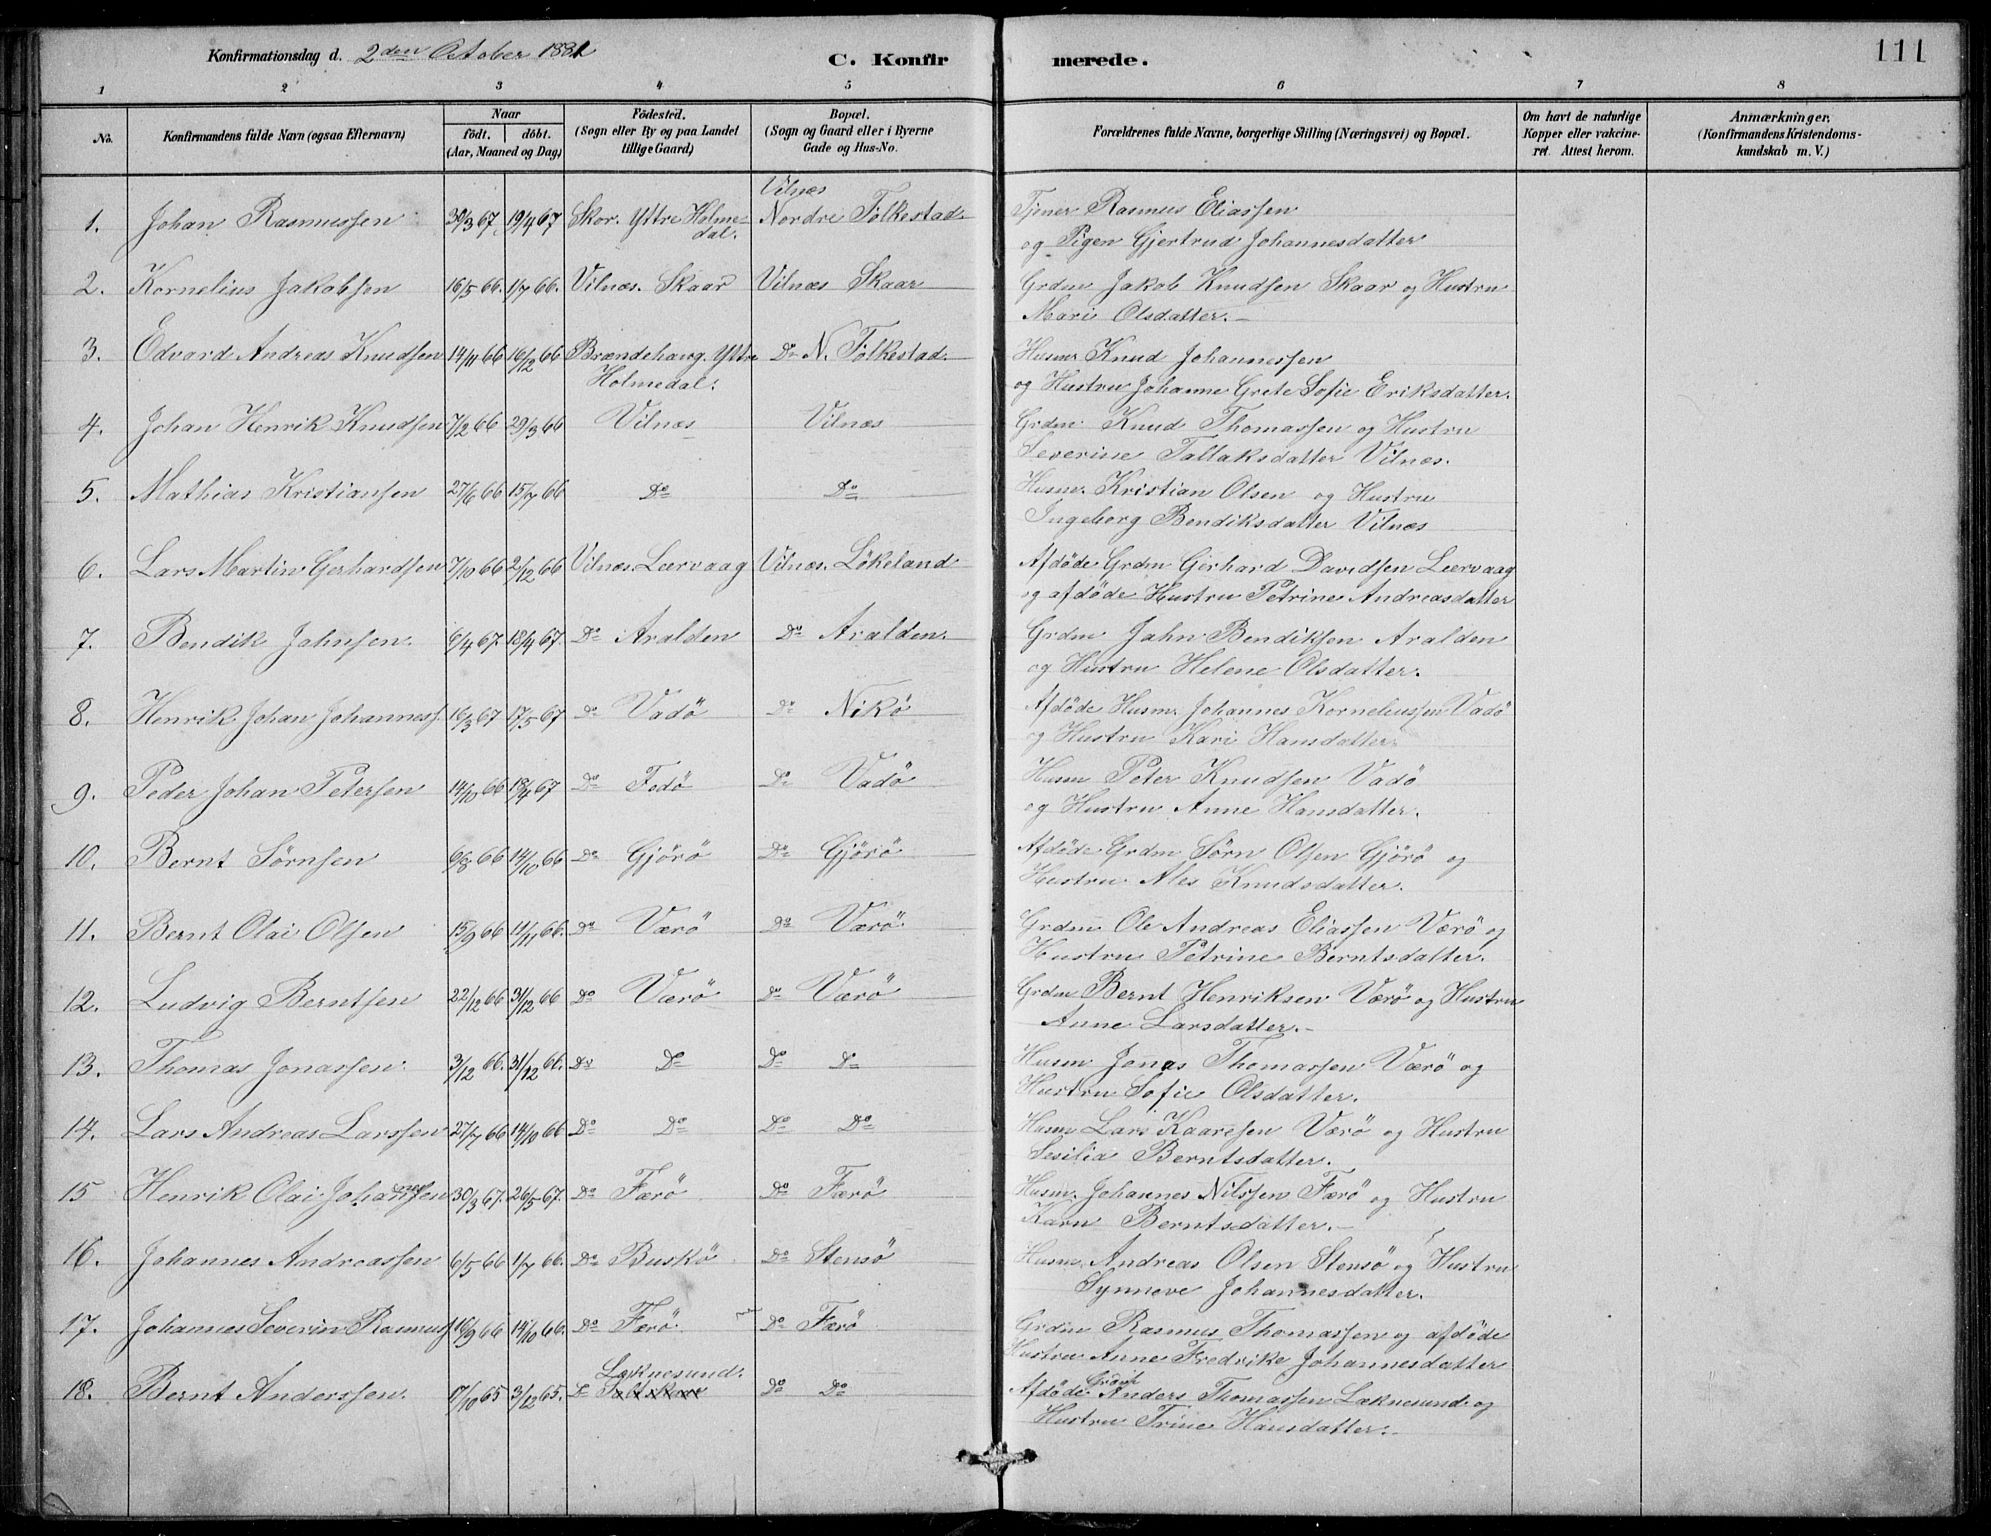 Konfirmationsdag d. 2den October 1881
C. Konfirmerede.
111
1 2 3 4 5 6 7 8
No. | Konfirmandens fulde Navn (ogsaa Efternavn) | Naar født. døbt. (Aar, Maaned og Dag) | Födested. (Sogn eller By og paa Landet tillige Gaard) | Bopæl. (Sogn og Gaard eller i Byerne Gade og Hus-No. | Forældrenes fulde Navne, borgerlige Stilling (Næringsvei) og Bopæl. | Om havt de naturlige Kopper eller vakcineret. Attest herom. | Anmærkninger. (Konfirmandens Kristendomskundskab m. V.)
1. Johan Rasmussen 30/3 67. 19/4 67 Skor. Yttre Holmedal. Vilnæs Nordre Folkestad Tjener Rasmus Eliassen
og Pigen Gjertrud Johannesdatter
2. Kornelius Jakobsen 16/5 66. 1/7 66. Vilnæs. Skaar Vilnæs Skaar Grdm Jakob Knudsen Skaar og Hustru
Mari Olsdatter.
3. Edvard Andreas Knudsen 14/11 66 16/12 66 Brændehaug. Yttre Holmedal. Do N. Folkestad Husm Knud Johannessen
og Hustru Johanne Grete Sofie Eriksdatter.
4. Johan Henrik Knudsen 7/2 66 29/3 66 Vilnæs Vilnæs Grdm Knud Thomassen og Hustru
Severine Tallaksdatter Vilnæs.
5. Mathias Kristiansen 27/6 66 15/7 66 Do Do Husm. Kristian Olsen og Hustru
Ingeborg Bendiksdatter Vilnæs
6. Lars Martin Gerhardsen 7/10 66 2/12 66 Vilnæs. Leervaag Vilnæs. Lökeland Afdöde Grdm Gerhard Davidsen Leervaag
og afdöde Hustru Petrine Andreasdatter
7. Bendik Jahnsen. 6/4 67. 18/4 67. Do Aralden Do Aralden. Grdm Jahn Bendiksen Aralden
og Hustru Helene Olsdatter.
8. Henrik Johan Johanness. 16/3 67 17/5 67 Do Vadö Do Nikö Afdöde Husm. Johannes Korneliussen Vadö
og Hustru Kari Hansdatter
9. Peder Johan Petersen 14/10 66 18/4 67 Do Fedö Do Vadö Husm Peter Knudsen Vadö
og Hustru Anne Hansdatter.
10. Bernt Sörnsen 6/8 66 14/10 66 Do Gjörö Do Gjörö Afdöde Grdm Sörn Olsen Gjörö og
Hustru Ales Knudsdatter.
11. Bernt Olai Olsen 15/9 66 11/11 66. Do Værö Do Værö Grdm Ole Andreas Eliassen Værö og
Hustru Petrine Berntsdatter.
12. Ludvig Berntsen 22/12 66 31/12 66 Do Værö Do Værö Grdm Bernt Henriksen Værö og Hustru
Anne Larsdatter.
13. Thomas Jonassen. 3/12 66. 31/12 66. Do Do Do Do Husm Jonas Thomassen Værö og
Hustru Sofie Olsdatter.
14. Lars Andreas Larssen 27/7 66 14/10 66 Do Do Do Do Husm Lars Kaaresen Værö og Hustru
Sesilia Berntsdatter.
15 Henrik Olai Johannessen 30/3 67. 26/5 67. Do Færö Do Færö Husm. Johannes Nilssen Færö og Hustru
Karn Berntsdatter.
16. Johannes Andreassen 6/5 66 1/7 66. Do Buskö Do Stensö Husm. Andreas Olsen Stensö og Hustru
Synnove Johannesdatter.
17. Johannes Severin Rasmuss 16/9 66 14/10 66. Do Færö Do Færö Grdm Rasmus Thomassen og afdöde
Hustru Anne Fredrike Johannesdatter
18. Bernt Anderssen. 17/10 65 3/12 65. Do Læknesund. Do Do Afdöde Anders Thomassen Læknesund og
Hustru Trine Hansdatter.